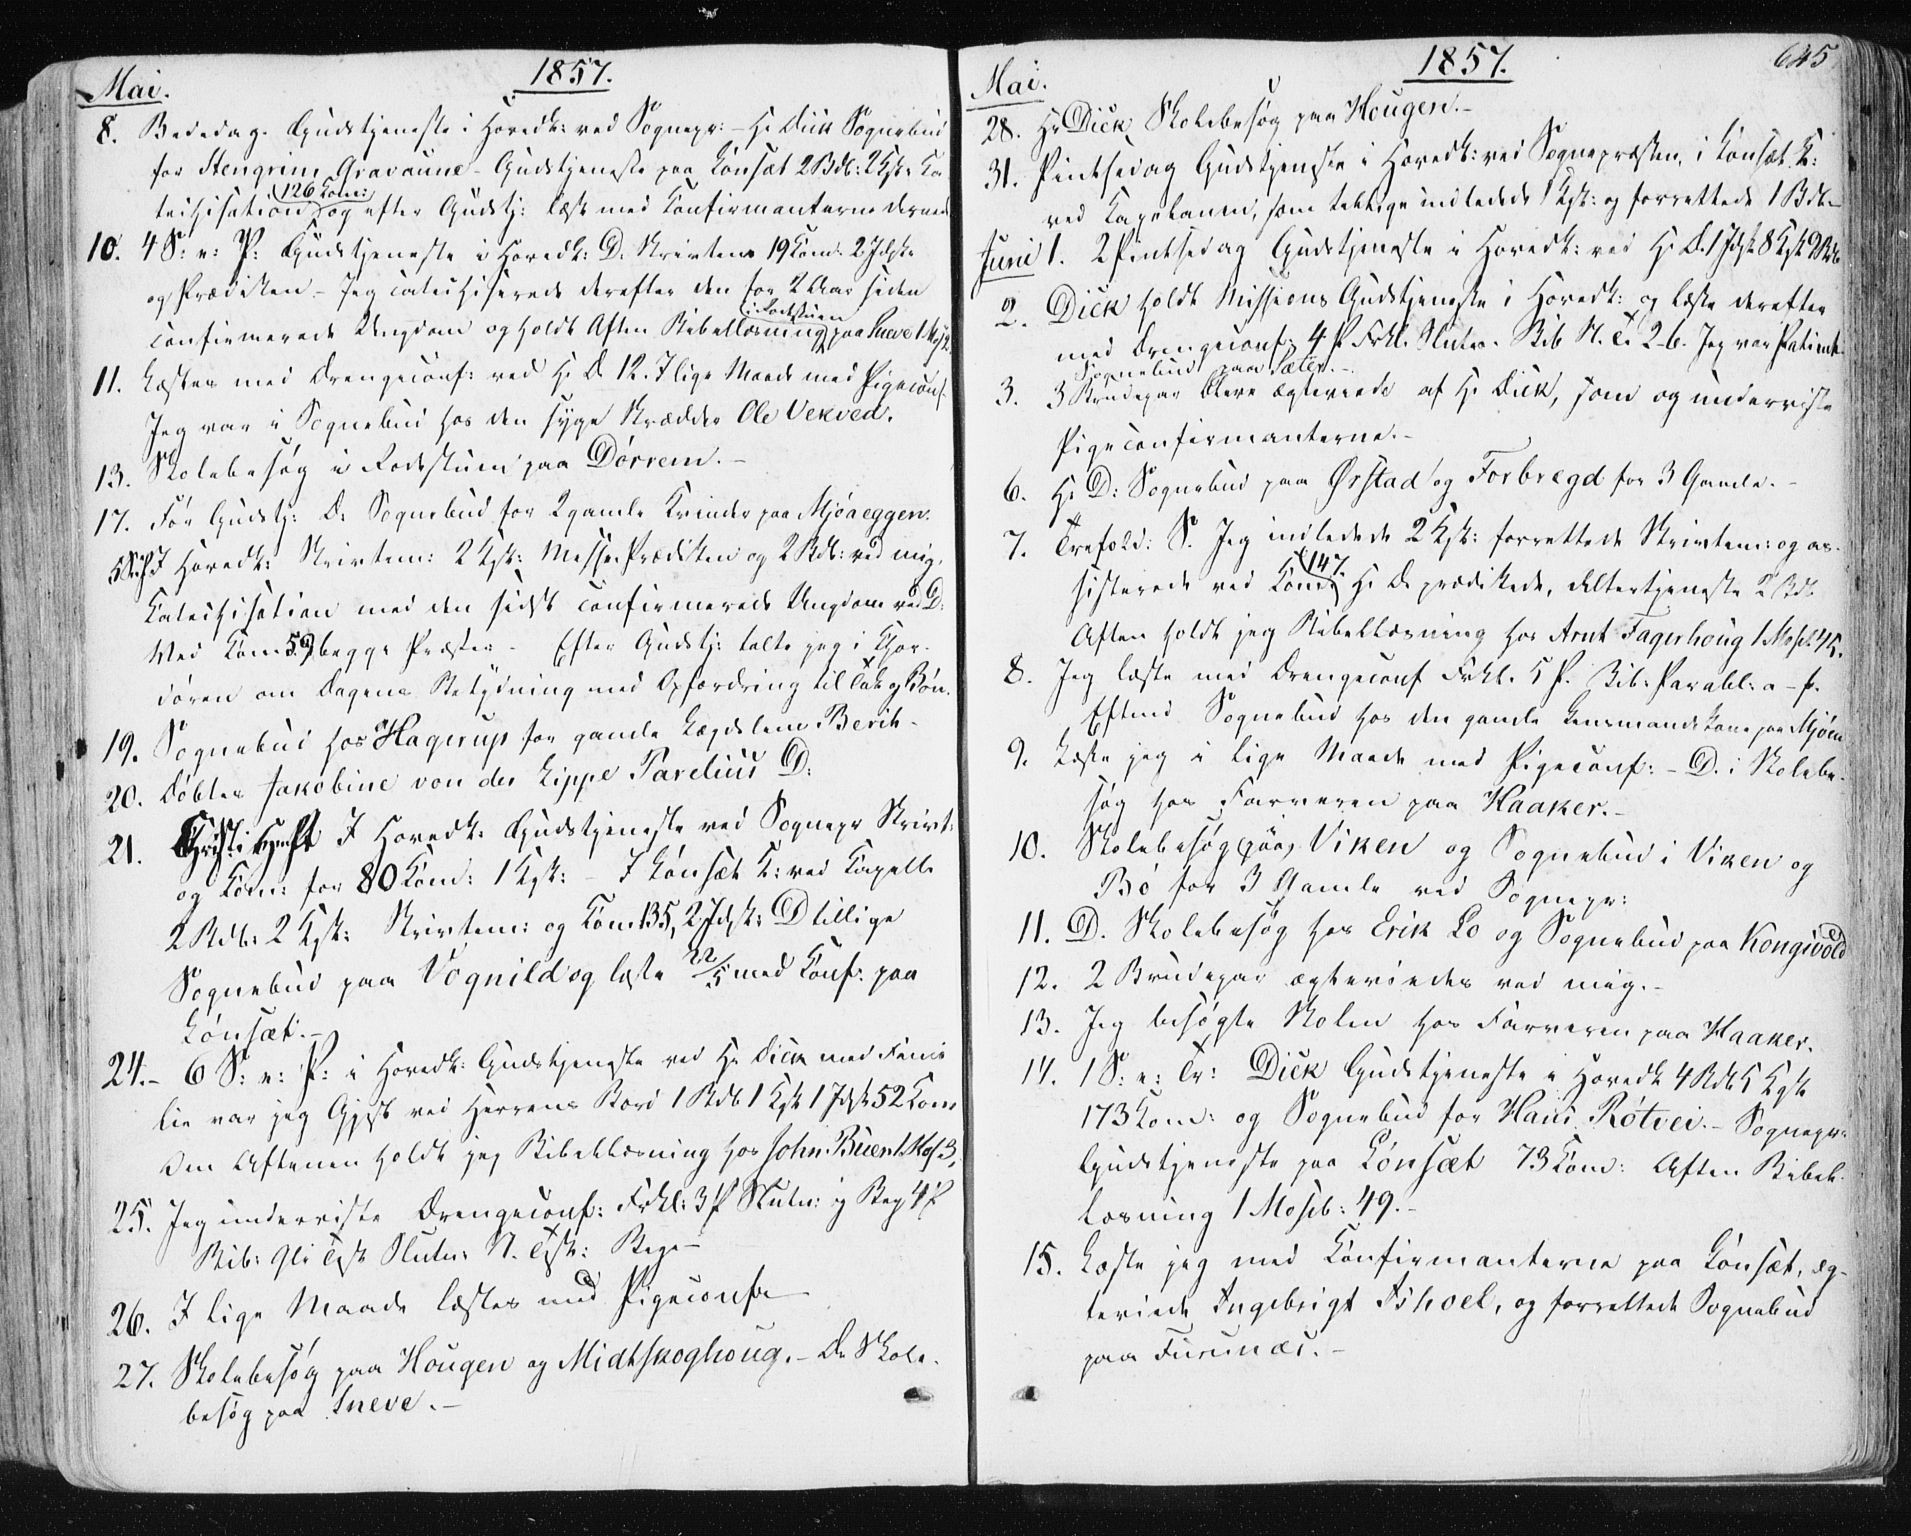 1857.
Mai.
8. Bededag. Gudstjeneste i Hovedk: ved Sognepr: - Hr Dick Sognebud
for Stengrim Gravaune - Gudstjeneste paa Lønset 2 Bdb: 2 Kgk: Ca
techisation (126 Com:) og efter Gudstj: læst med Confirmanterne derned
10. 4 S: e: P: Gudstjeneste i Hovedk: D. Skriftem 19 Com: 2 Idsk:
og Prædiken - Jeg catechiserede derefter den for 2 Aar siden
confirmerede Ungdom og holdt Aften Bibellæsning (i Rodstuen) paa Sneve 1 Mos
11. Læstes med Drengeconf: ved Hr D. 12. I lige Maade med Pigeconf.
Jeg var i Sognebud hos den syge Skrædder Ole Vekved.
13. Skolebesøg i Rodestuen paa Dørrem. -
17. Før Gudstj: D. Sognebud for 2 gamle Kvinder paa Mjøaeggen.
5 S: e: P: I Hovedk: Skriftem: 2 Kgk: Messe, Prædiken og 2 Bdb: ved mig.
Katechisation med den sidst confirmerede Ungdom ved D:
Ved Com 59) begge Præster - Efter Gudstj: talte jeg i Chor-
døren om Dagens Betydning med Opfordring til Tak og Bøn.
19. Sognebud hos Hagerup for gamle Lægdslem Berit -
20. Døbtes Jakobine von der Lippe Parelius D:
21. Christi Hf I Hovedk: Gudstjeneste ved Sognepr Skrift:
og Com: for 80 Com: 1 Kgk: - I Lønset K: ved Kapell:
2 Bdb: 2 Kgk: Skriftem: og Com 135, 2 Idsk: D tillige
Sognebud paa Vognild og læste 22/5 med Conf: paa
Lønset. -
24. - 6 S: e: P: i Hovedk: Gudstjeneste ved Hr Dick med Fami
lie var jeg Gjest ved Herrens Bord 1 Bdb 1 Kgk 1 Idsk 52 Com
Om Aftenen holdt jeg Bibellæsning hos John Buen 1 Mos 3,
25. Jeg underviste Drengeconf: Frkl: 3 P Slutn: ig Beg 4 P
Bib: Gl: Tsk Slutn: N. Tsk: Beg: -
26. I lige Maade læstes med Pigeconf:
27. Skolebesøg paa Hougen og Midtskoghoug. - D. Skole-
besøg paa Sneve. -
1857.
645
Mai.
28. Hr Dick Skolebesøg paa Hougen. -
31. Pintsedag Gudstjeneste i Hovedk: ved Sognepræsten, i Lønset K:
ved Kapellanen, som tillige indledede 1 Kgk: og forrettede 1 Bdb -
Juni 1. 2 Pintsedag Gudstjeneste i Hovedk: ved Hr D. 1 Idsk 8 Kgk 2 Bdb
2. Dick holdt Missions Gudstjeneste i Hovedk: og læste derefter
med Drengeconf: 4 P Frkl. Slutn. Bib N. T. 2-6. Jeg var Patient.
Sognebud paa Sæter. -
3. 3 Brudepar bleve ægteviede af Hr Dick, som og underviste
Pigeconfirmanterne. -
6. Hr D: Sognebud paa Ørstad og Forbregd for 3 Gamle. -
7. Trefold: S. Jeg indledede 2 Kgk: forrettede Skriftem: og as-
sisterede ved Com: (147. Hr D. prædikede, Altertjeneste 2 Bdb
Aften holdt jeg Bibellæsning hos Arnt Fagerhoug 1 Mosb. 45.
8. Jeg læste med Drengeconf Frkl. 5 P. Bib: Parabl: a - f.
Eftmd Sognebud hos den gamle Lensmandskone paa Mjøen
9. Læste jeg i lige Maade med Pigeconf: - D. i Skolebe-
søg hos Farveren paa Haaker. -
10. Skolebesøg (paa) Viken og Sognebud i Viken og
Bø for 3 Gamle ved Sognepr:
11. D. Skolebesøg hos Erik Lo og Sognebud paa Kongsvold
12. 2 Brudepar ægteviedes ved mig. -
13. Jeg besøgte Skolen hos Farveren paa Haaker.
14. 1 S: e: Tr: Dick Gudstjeneste i Hovedk 4 Bdb 5 Kgk
173 Com: og Sognebud for Hans Røtvei. - Sognepr:
Gudstjeneste paa Lønset 73 Com: Aften Bibel-
læsning 1 Moseb: 49. -
15. Læste jeg med Confirmanterne paa Lønset, æg-
teviede Ingebrigt Ishoel, og forrettede Sognebud
paa Furunæs. -